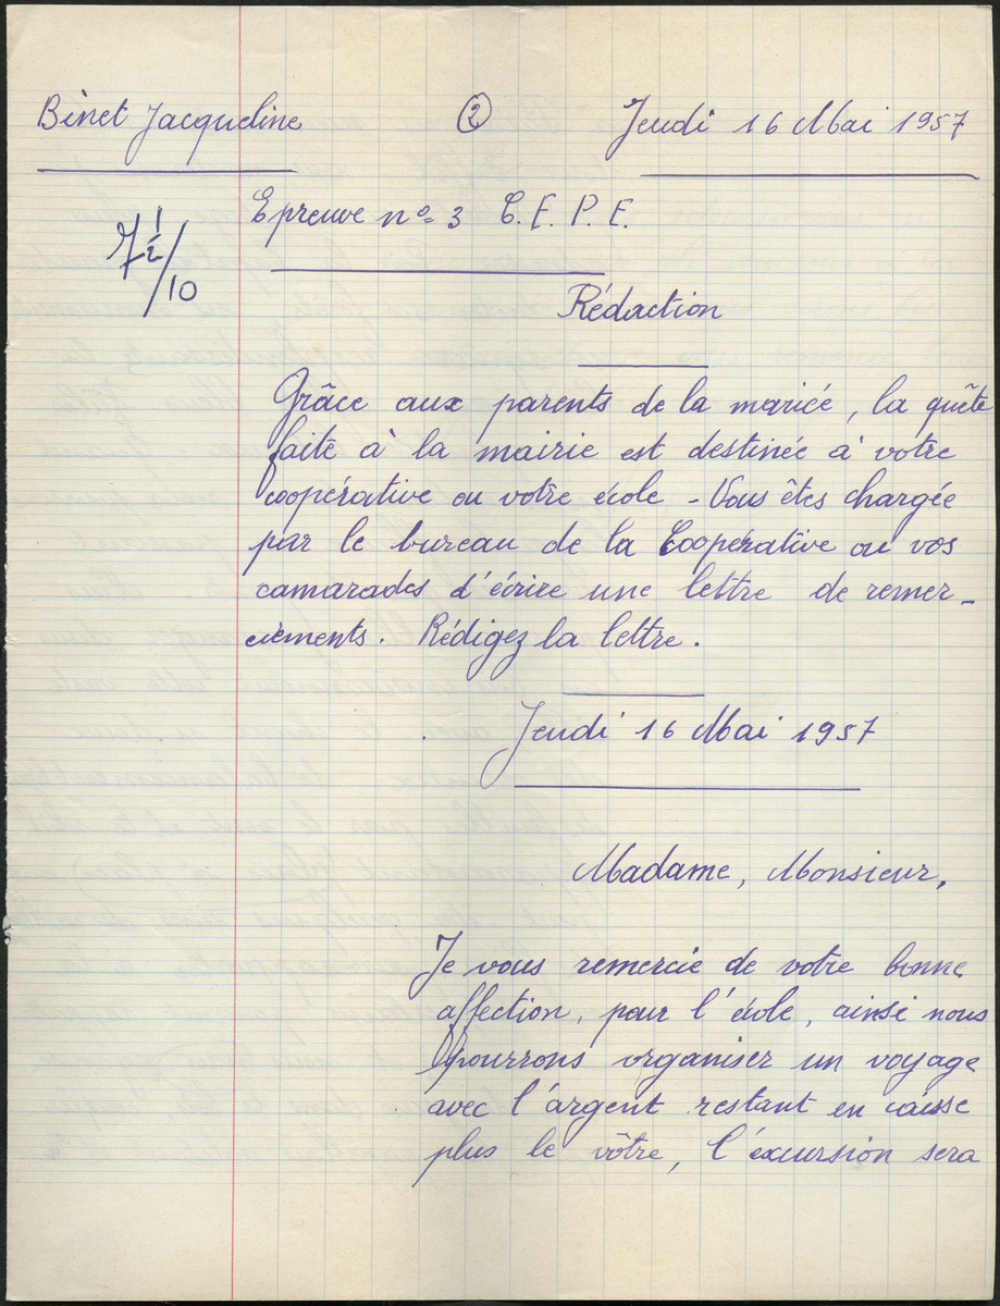 Binet Jacqueline ② Jeudi 16 Mai 1957
Epreuve nº 3 C.E.P.E.
7 1/2 /10
Rédaction
Grâce aux parents de la mariée, la quête
faite à la mairie est destinée à votre
coopérative ou votre école - Vous êtes chargée
par le bureau de la Coopérative ou vos
camarades d'écrire une lettre de remer-
ciements. Rédigez la lettre.
Jeudi 16 Mai 1957
Madame, Monsieur,
Je vous remercie de votre bonne
affection, pour l'école, ainsi nous
pourrons organiser un voyage
avec l'argent restant en caisse
plus le vôtre, l'excursion sera